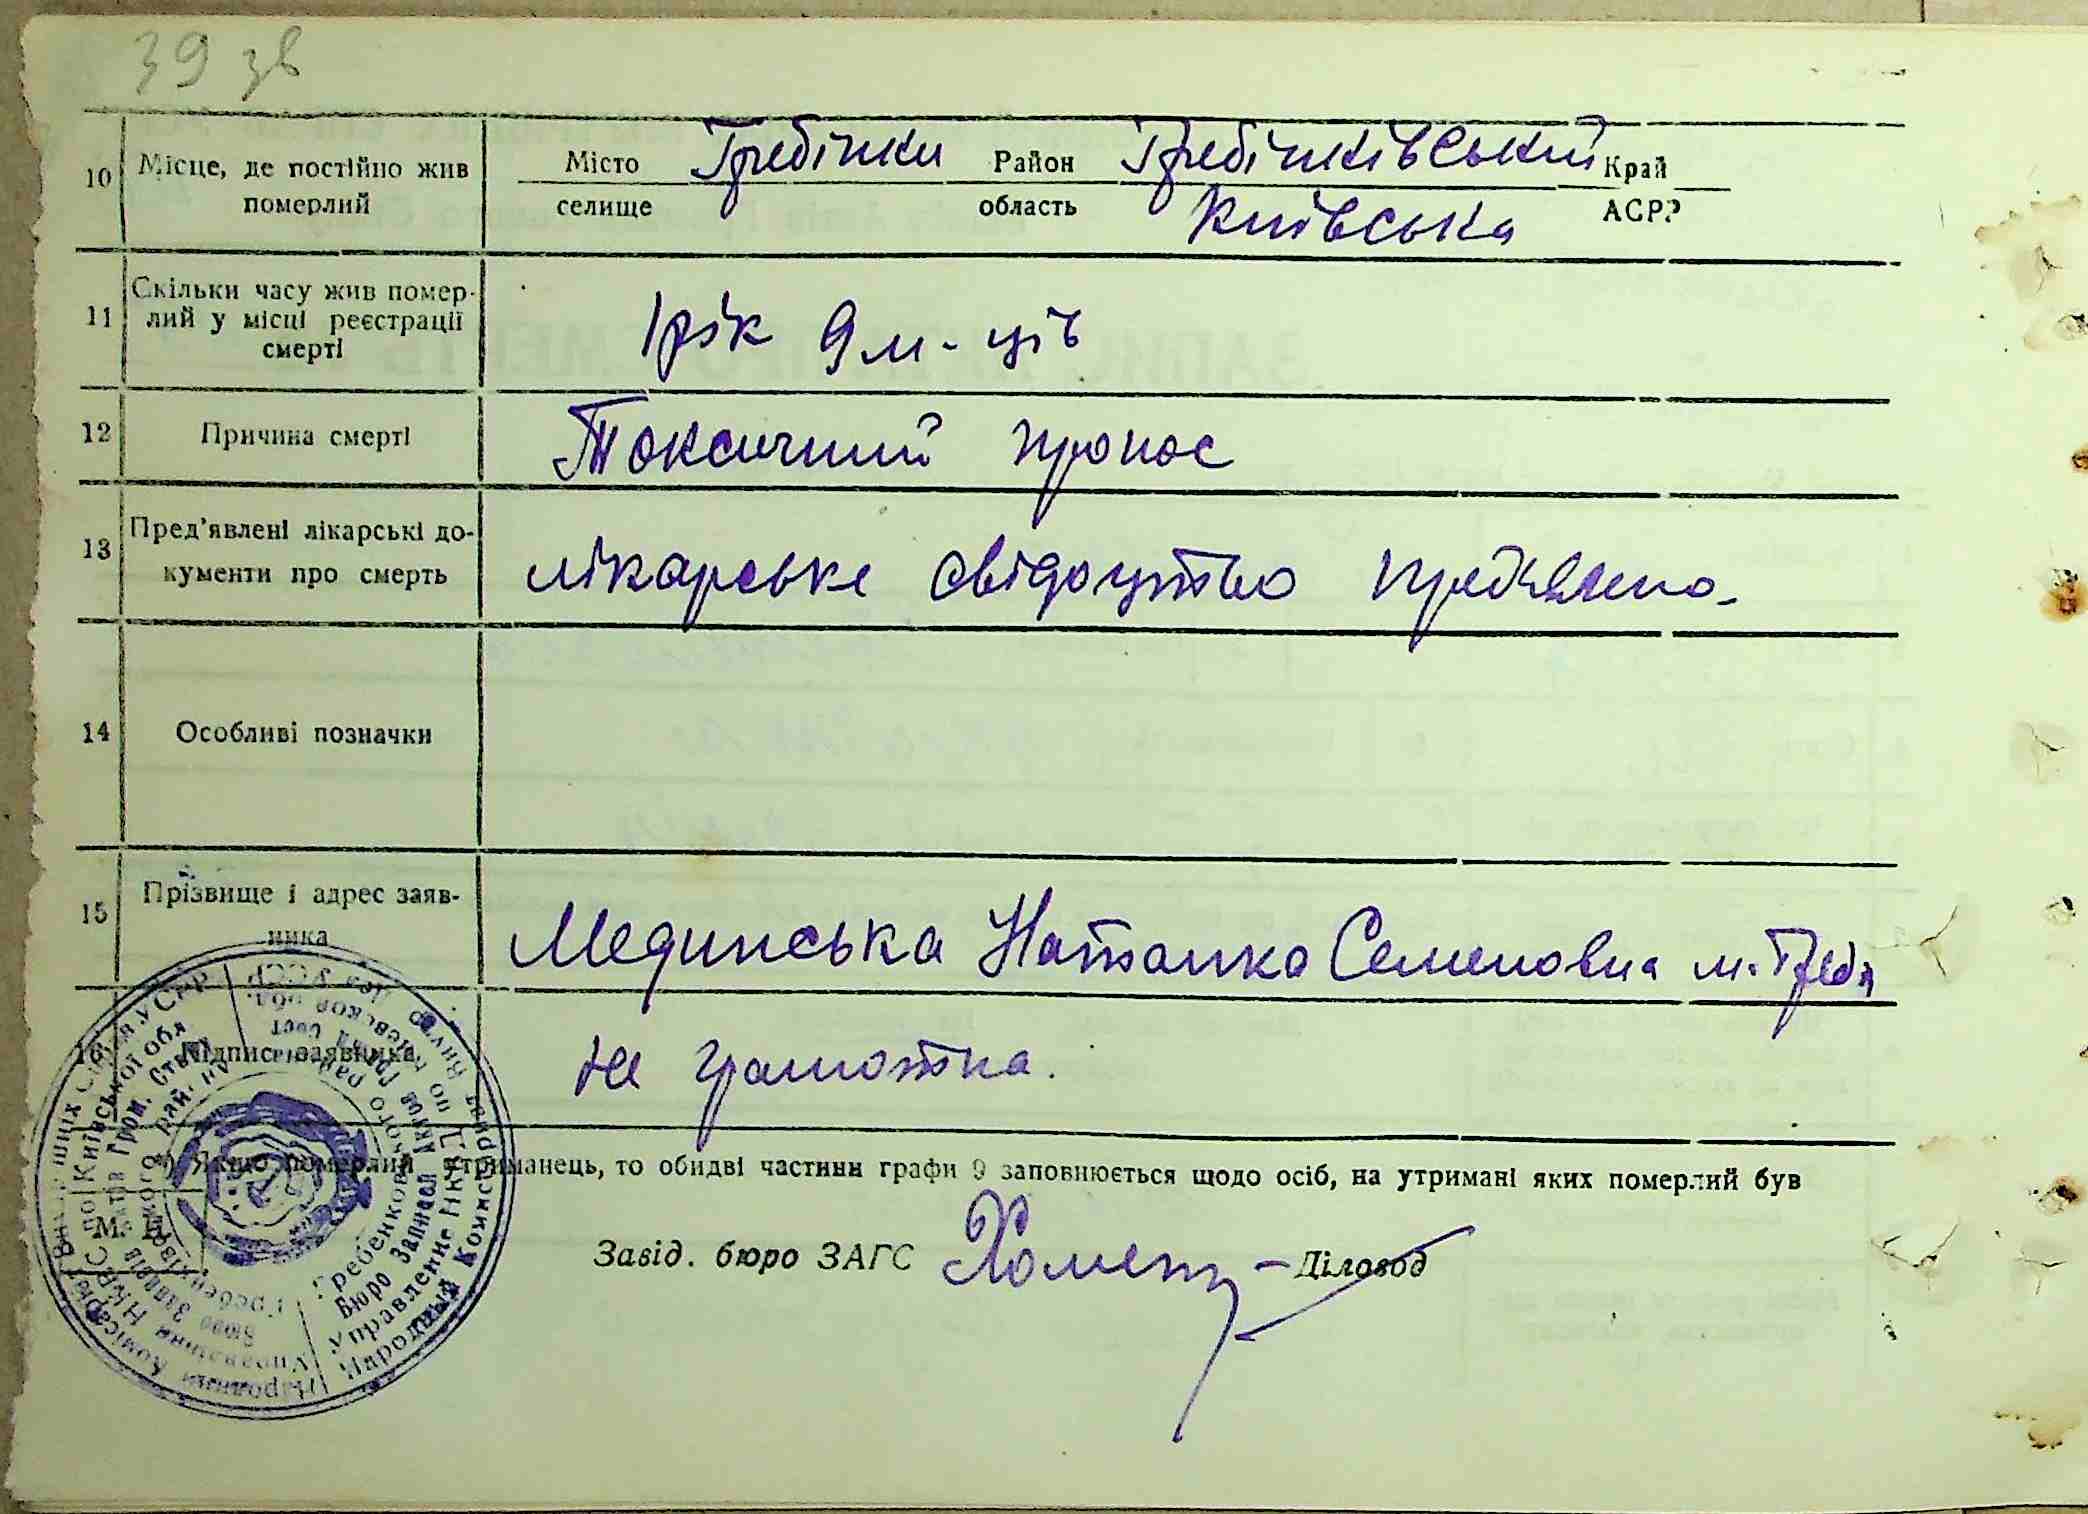 39 зв
10 Місце, де постійно жив померлий
Місто Гребінки Район Гребінківський Край
селище область Київська АСРР
11 Скільки часу жив помер-
лий у місці реєстрації
смерті
1 рік 9 м-ців
12 Причина смерті Токсичний пронос
13 Пред'явлені лікарські до-
кументи про смерть
лікарське свідоцтво пред'явлено.
14 Особливі позначки
15 Прізвище і адрес заяв-
ника
Мединська Наталка Семеновна м. Греб
16 Підпис заявника не грамотна.
Якщо померлий утриманець, то обидві частини графи 9 заповнюється щодо осіб, на утримані яких померлий був
М. П.
Завід. бюро ЗАГС Діловод
Народный Комиссариат Внутр
Управление НКВД по Киевской обл.
Бюро Записи Актов Гражд Сост
Гребенковского района